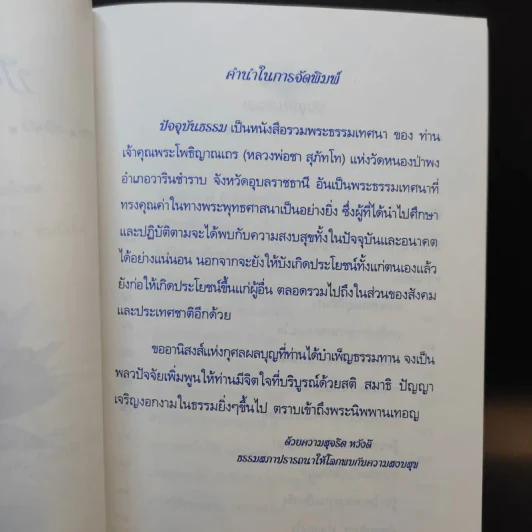 คำนำในการจัดพิมพ์
ปัจจุบันธรรม เป็นหนังสือรวมพระธรรมเทศนา ของ ท่าน
เจ้าคุณพระโพธิญาณเถร (หลวงพ่อชา สุภัทโท) แห่งวัดหนองป่าพง
อำเภอวารินชำราบ จังหวัดอุบลราชธานี อันเป็นพระธรรมเทศนาที่
ทรงคุณค่าในทางพระพุทธศาสนาเป็นอย่างยิ่ง ซึ่งผู้ที่ได้นำไปศึกษา
และปฏิบัติตามจะได้พบกับความสงบสุขทั้งในปัจจุบันและอนาคต
ได้อย่างแน่นอน นอกจากจะยังให้บังเกิดประโยชน์ทั้งแก่ตนเองแล้ว
ยังก่อให้เกิดประโยชน์ขึ้นแก่ผู้อื่น ตลอดรวมไปถึงในส่วนของสังคม
และประเทศชาติอีกด้วย
ขออานิสงส์แห่งกุศลผลบุญที่ท่านได้บำเพ็ญธรรมทาน จงเป็น
พลวปัจจัยเพิ่มพูนให้ท่านมีจิตใจที่บริบูรณ์ด้วยสติ สมาธิ ปัญญา
เจริญงอกงามในธรรมยิ่งๆขึ้นไป ตราบเข้าถึงพระนิพพานเทอญ
ด้วยความสุจริต หวังดี
ธรรมสภาปรารถนาให้โลกพบกับความสงบสุข